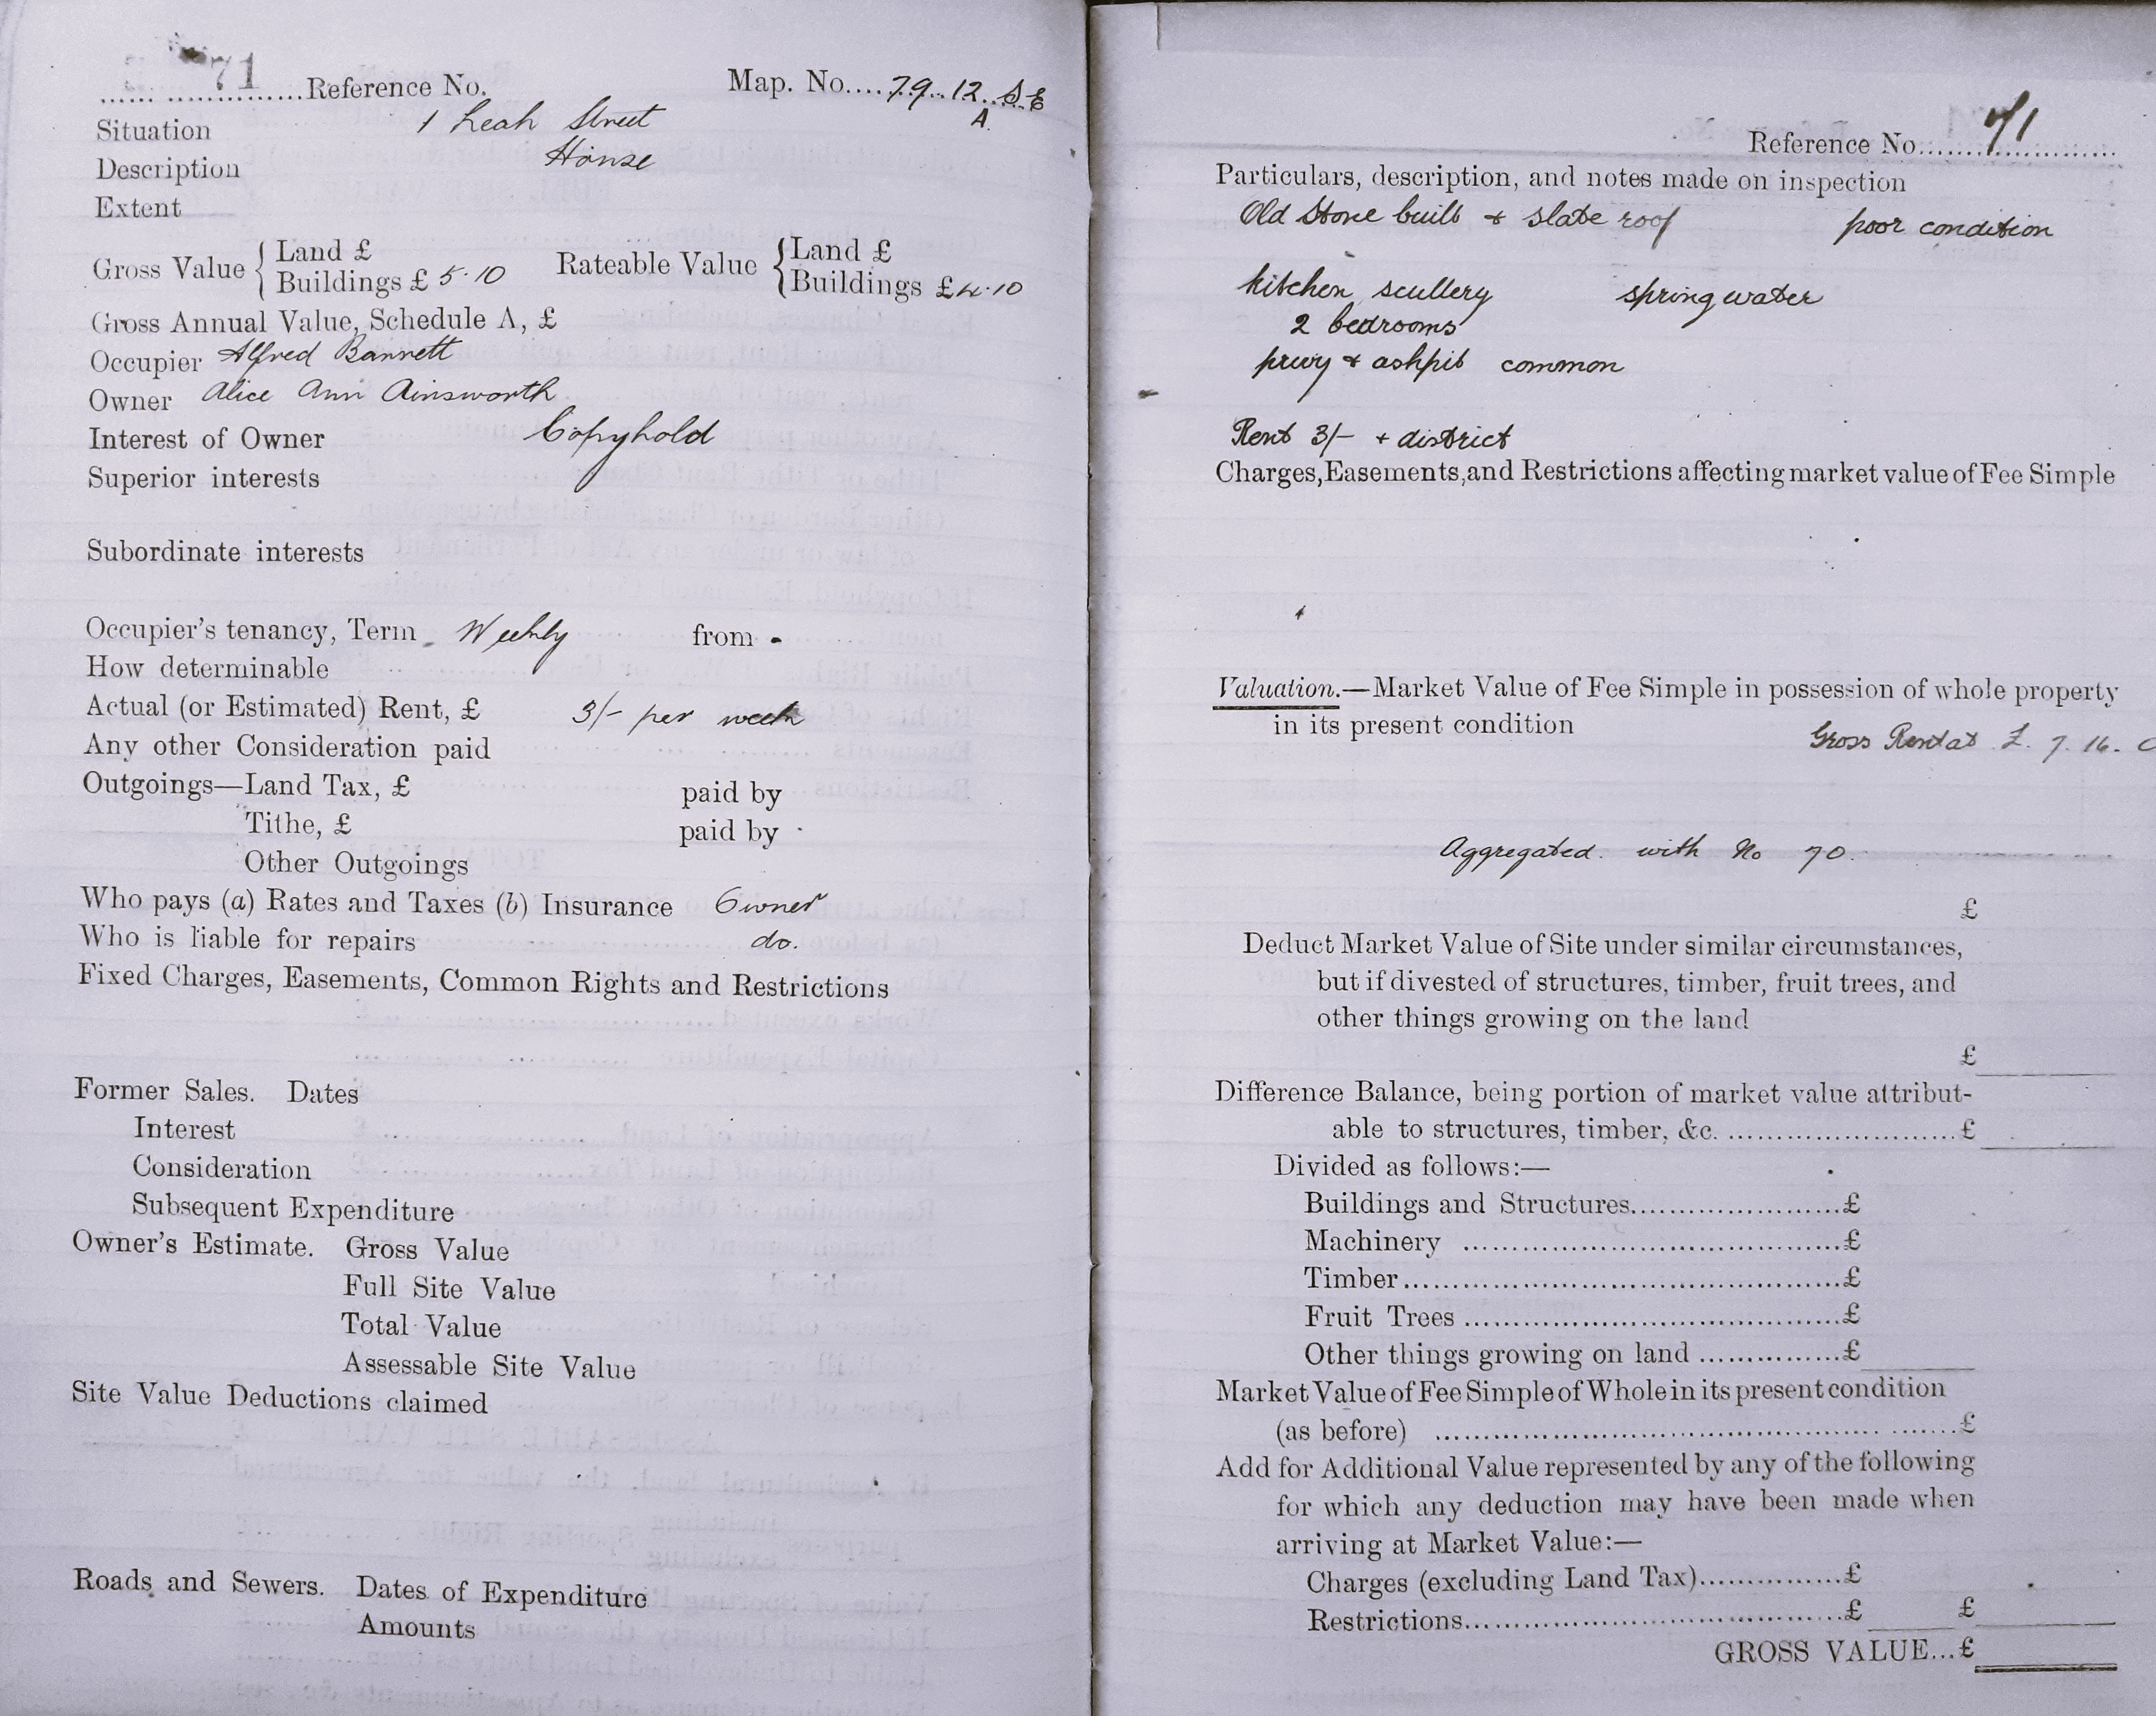 71 Reference No. Map. No. 79. 12. S.E
A.
Situation 1 Leah Street
Description House
Extent
Gross Value { Land £ Rateable Value { Land £
Buildings £ 5.10 Buildings £ 4.10
Gross Annual Value, Schedule A, £
Occupier Alfred Barrett
Owner Alice Ann Ainsworth
Interest of Owner Copyhold
Superior interests
Subordinate interests
Occupier's tenancy, Term Weekly from
How determinable
Actual (or Estimated) Rent, £ 3/- per week
Any other Consideration paid
Outgoings—Land Tax, £ paid by
Tithe, £ paid by
Other Outgoings
Who pays (a) Rates and Taxes (b) Insurance Owner
Who is liable for repairs do.
Fixed Charges, Easements, Common Rights and Restrictions
Former Sales. Dates
Interest
Consideration
Subsequent Expenditure
Owner's Estimate. Gross Value
Full Site Value
Total Value
Assessable Site Value
Site Value Deductions claimed
Roads and Sewers. Dates of Expenditure
Amounts
Reference No. 71
Particulars, description, and notes made on inspection
Old Stone built + slate roof poor condition
kitchen, scullery spring water
2 bedrooms
privy + ashpit common
Rent 3/- + district
Charges, Easements, and Restrictions affecting market value of Fee Simple
Valuation.—Market Value of Fee Simple in possession of whole property
in its present condition
Gross Rental £. 7. 16. 0
Aggregated with No 70.
£
Deduct Market Value of Site under similar circumstances,
but if divested of structures, timber, fruit trees, and
other things growing on the land
£
Difference Balance, being portion of market value attribut-
able to structures, timber, &c. £
Divided as follows:—
Buildings and Structures £
Machinery £
Timber £
Fruit Trees £
Other things growing on land £
Market Value of Fee Simple of Whole in its present condition
(as before) £
Add for Additional Value represented by any of the following
for which any deduction may have been made when
arriving at Market Value:—
Charges (excluding Land Tax) £
Restrictions £ £
GROSS VALUE...£